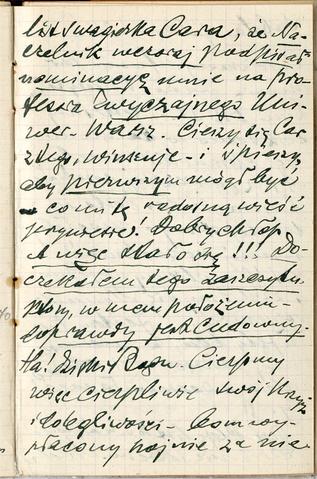 list szwagierka Cara, że Na-
czelnik wczoraj podpisał
nominację mnie na pro-
fesora zwyczajnego Uni-
wer. Warsz. Cieszy się Car
z tego, winszuje - i śpieszy,
aby pierwszym mógł być
co mi tę radosną wieść
przyniesie! Dobry chłop
A więc stało się!!! Do-
czekałem tego zaszczytu
który, w mem położeniu -
doprawdy jest cudowny.
Ha! Dzięki Bogu. Cierpmy
więc cierpliwie swój krzyż
i dolegliwości -
płacony hojnie za nie